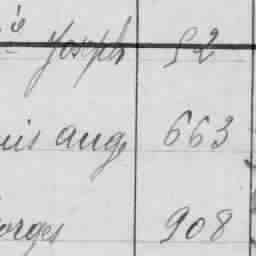 Joseph 52
uis aug 663
orges 908